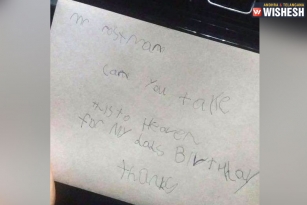 ANDHRA | TELANGANA
WISHESH
mr Postman
can you take
this to Heaven
for my dads BirthDay
thanks